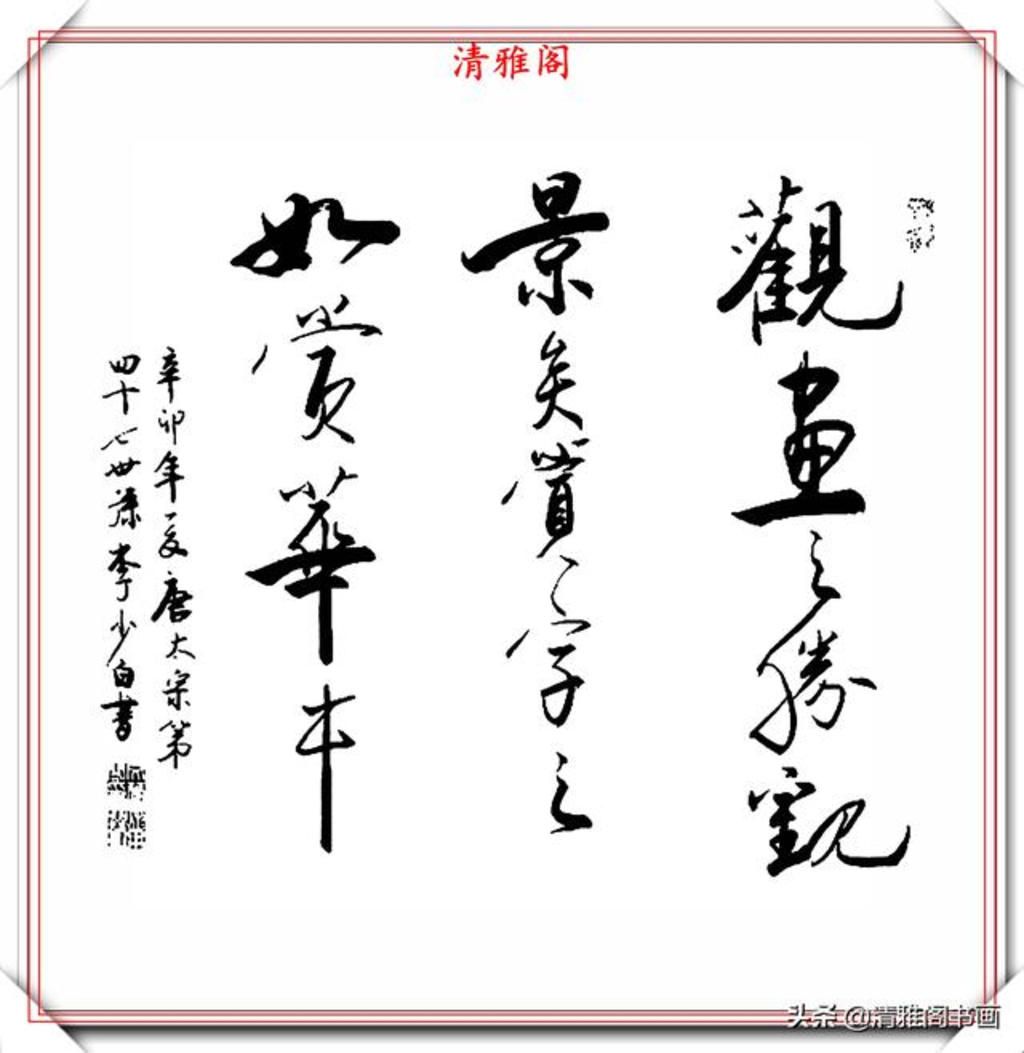 清雅阁
觀畫之勝觀
景矣賞字之
如賞華木
辛卯年夏唐太宗第
四十七世孫李少白書
头条 @清雅阁书画